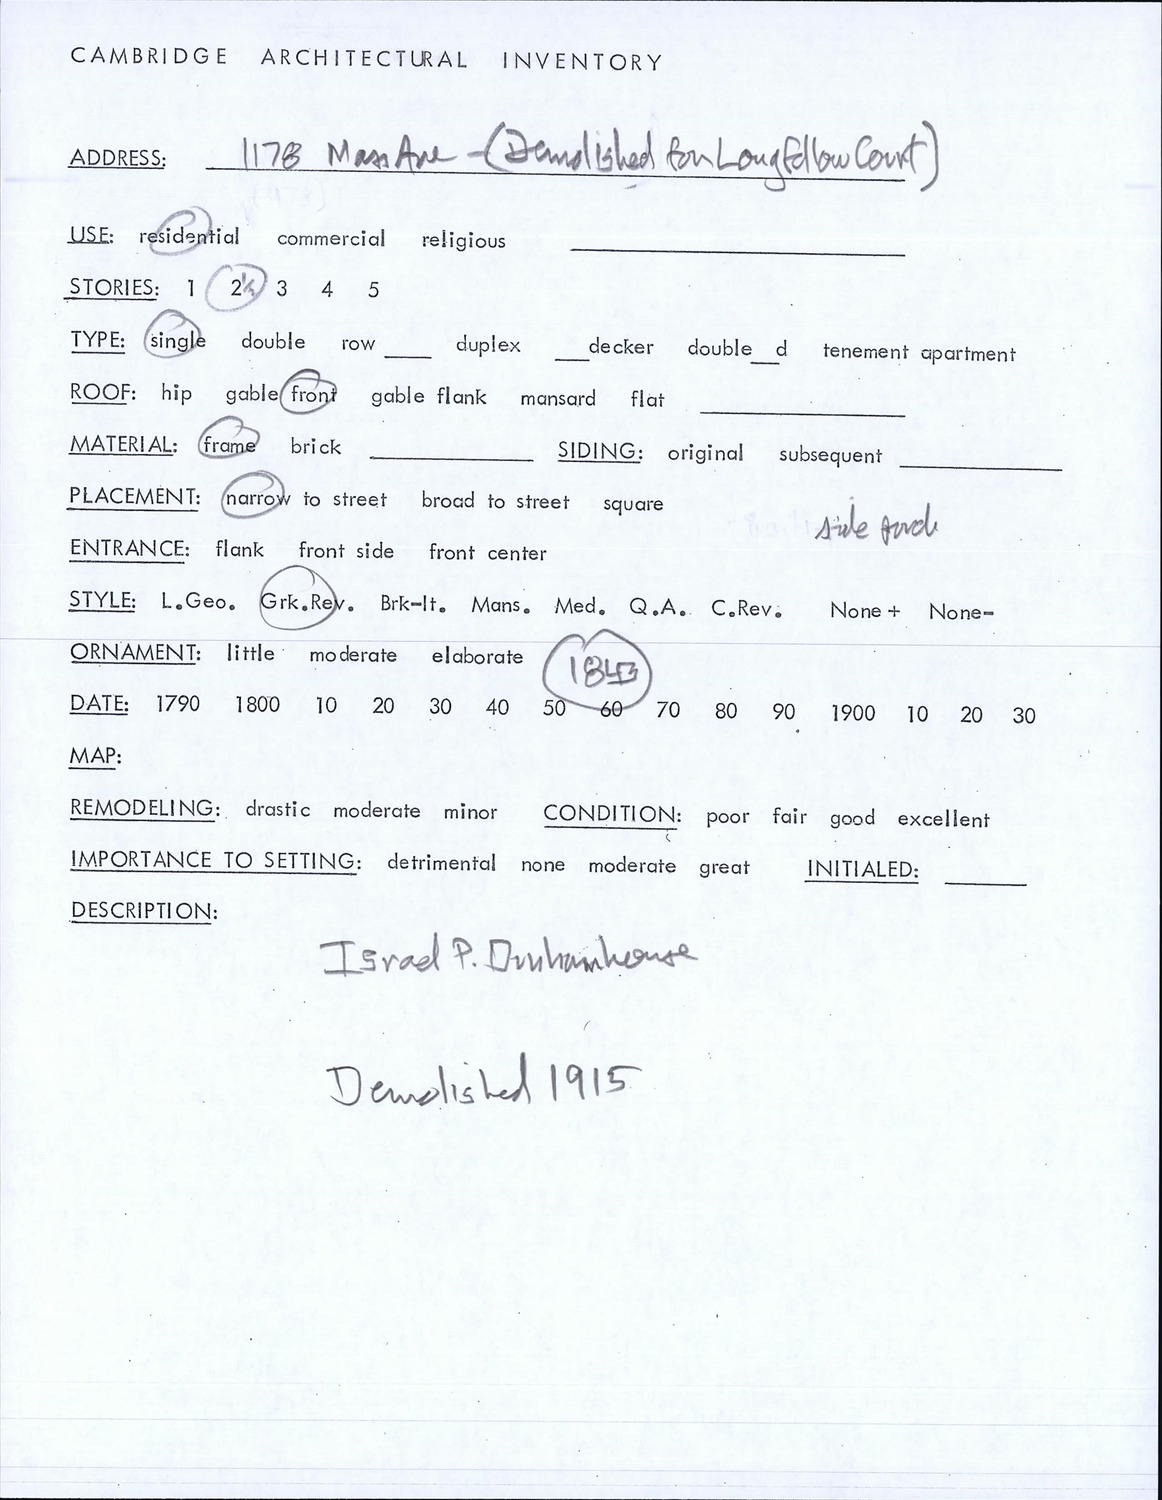 CAMBRIDGE ARCHITECTURAL INVENTORY
ADDRESS: 1178 Mass Ave - (Demolished for Longfellow Court)
USE: residential commercial religious
STORIES: 1 2½ 3 4 5
TYPE: single double row ___ duplex ___decker double__d tenement apartment
ROOF: hip gable front gable flank mansard flat
MATERIAL: frame brick SIDING: original subsequent
PLACEMENT: narrow to street broad to street square
side porch
ENTRANCE: flank front side front center
STYLE: L.Geo. Grk.Rev. Brk-It. Mans. Med. Q.A. C.Rev. None+ None-
ORNAMENT: little moderate elaborate
DATE: 1790 1800 10 20 30 40 50 60 70 80 90 1900 10 20 30
MAP:
REMODELING: drastic moderate minor CONDITION: poor fair good excellent
IMPORTANCE TO SETTING: detrimental none moderate great INITIALED:
DESCRIPTION:
Israel P. Dunham house
Demolished 1915